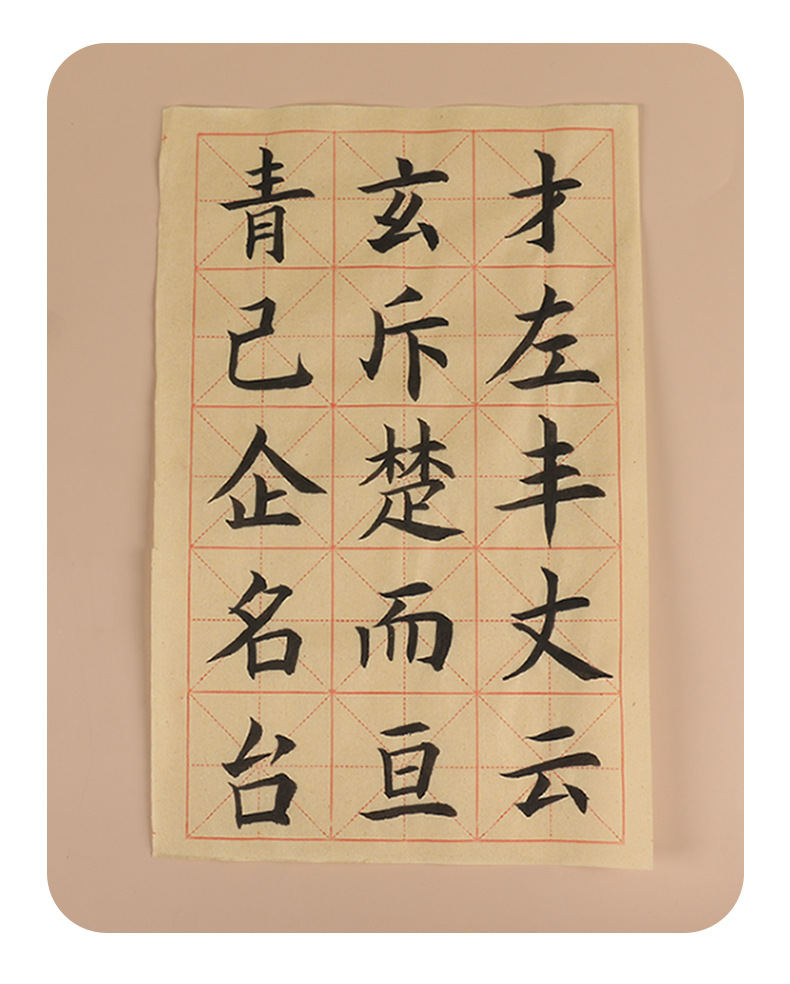 才左丰丈云
玄斥楚而亘
青己企名台